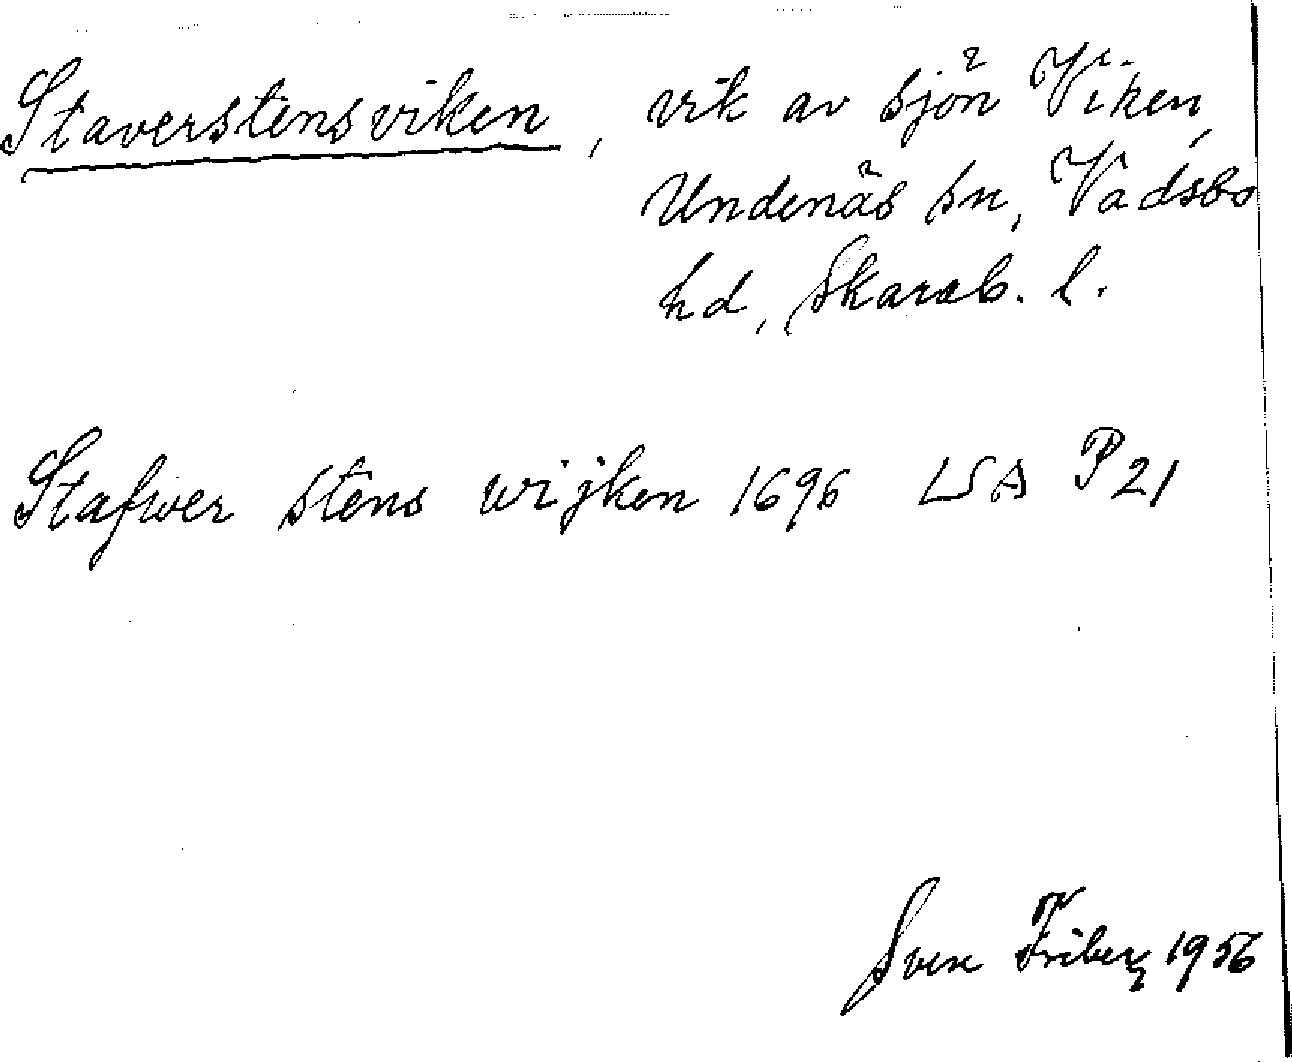 Staverstensviken, vik av sjön Viken,
Undenäs sn, Vadsbo
hd, Skarab. l.
Stafwer stens wijken 1696 LSA P 21
Sven Friberg 1956